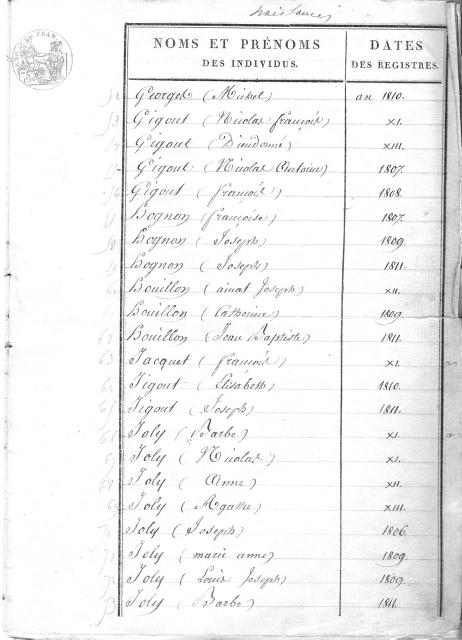 naissances
NOMS ET PRÉNOMS DATES
DES INDIVIDUS. DES REGISTRES.
52 Georgel (Michel) an 1810.
53 Gigout (Nicolas françois) XI.
54 Gigout (Dieudonné) XIII.
55 Gigout (Nicolas Antoine) 1807.
56 Gigout (françois) 1808.
57 Hognon (françoise) 1807.
58 Hognon (Joseph) 1809.
59 Hognon (Joseph) 1811.
60 Houillon (aimat Joseph) XII.
61 Houillon (Catherine) 1809.
62 Houillon (Jean Baptiste) 1811.
63 Jacquet (françois) XI.
64 Jigout (Elisabeth) 1810.
65 Jigout (Joseph) 1811.
66 Joly (Barbe) XI.
67 Joly (Nicolas) XI.
68 Joly (Anne) XII.
69 Joly (Agathe) XIII.
70 Joly (Joseph) 1806.
71 Joly (marie anne) 1809.
72 Joly (Louis Joseph) 1809
73 Joly (Barbe) 1811.